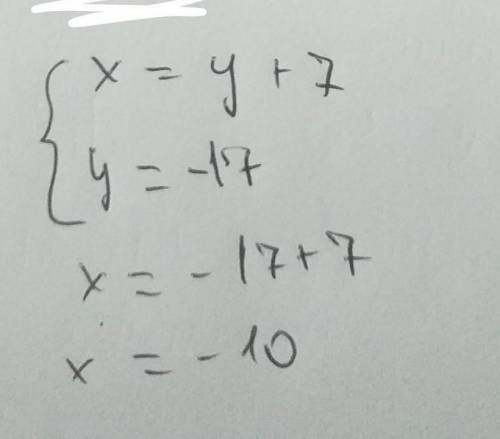 { x = y + 7
y = -17
x = - 17 + 7
x = - 10